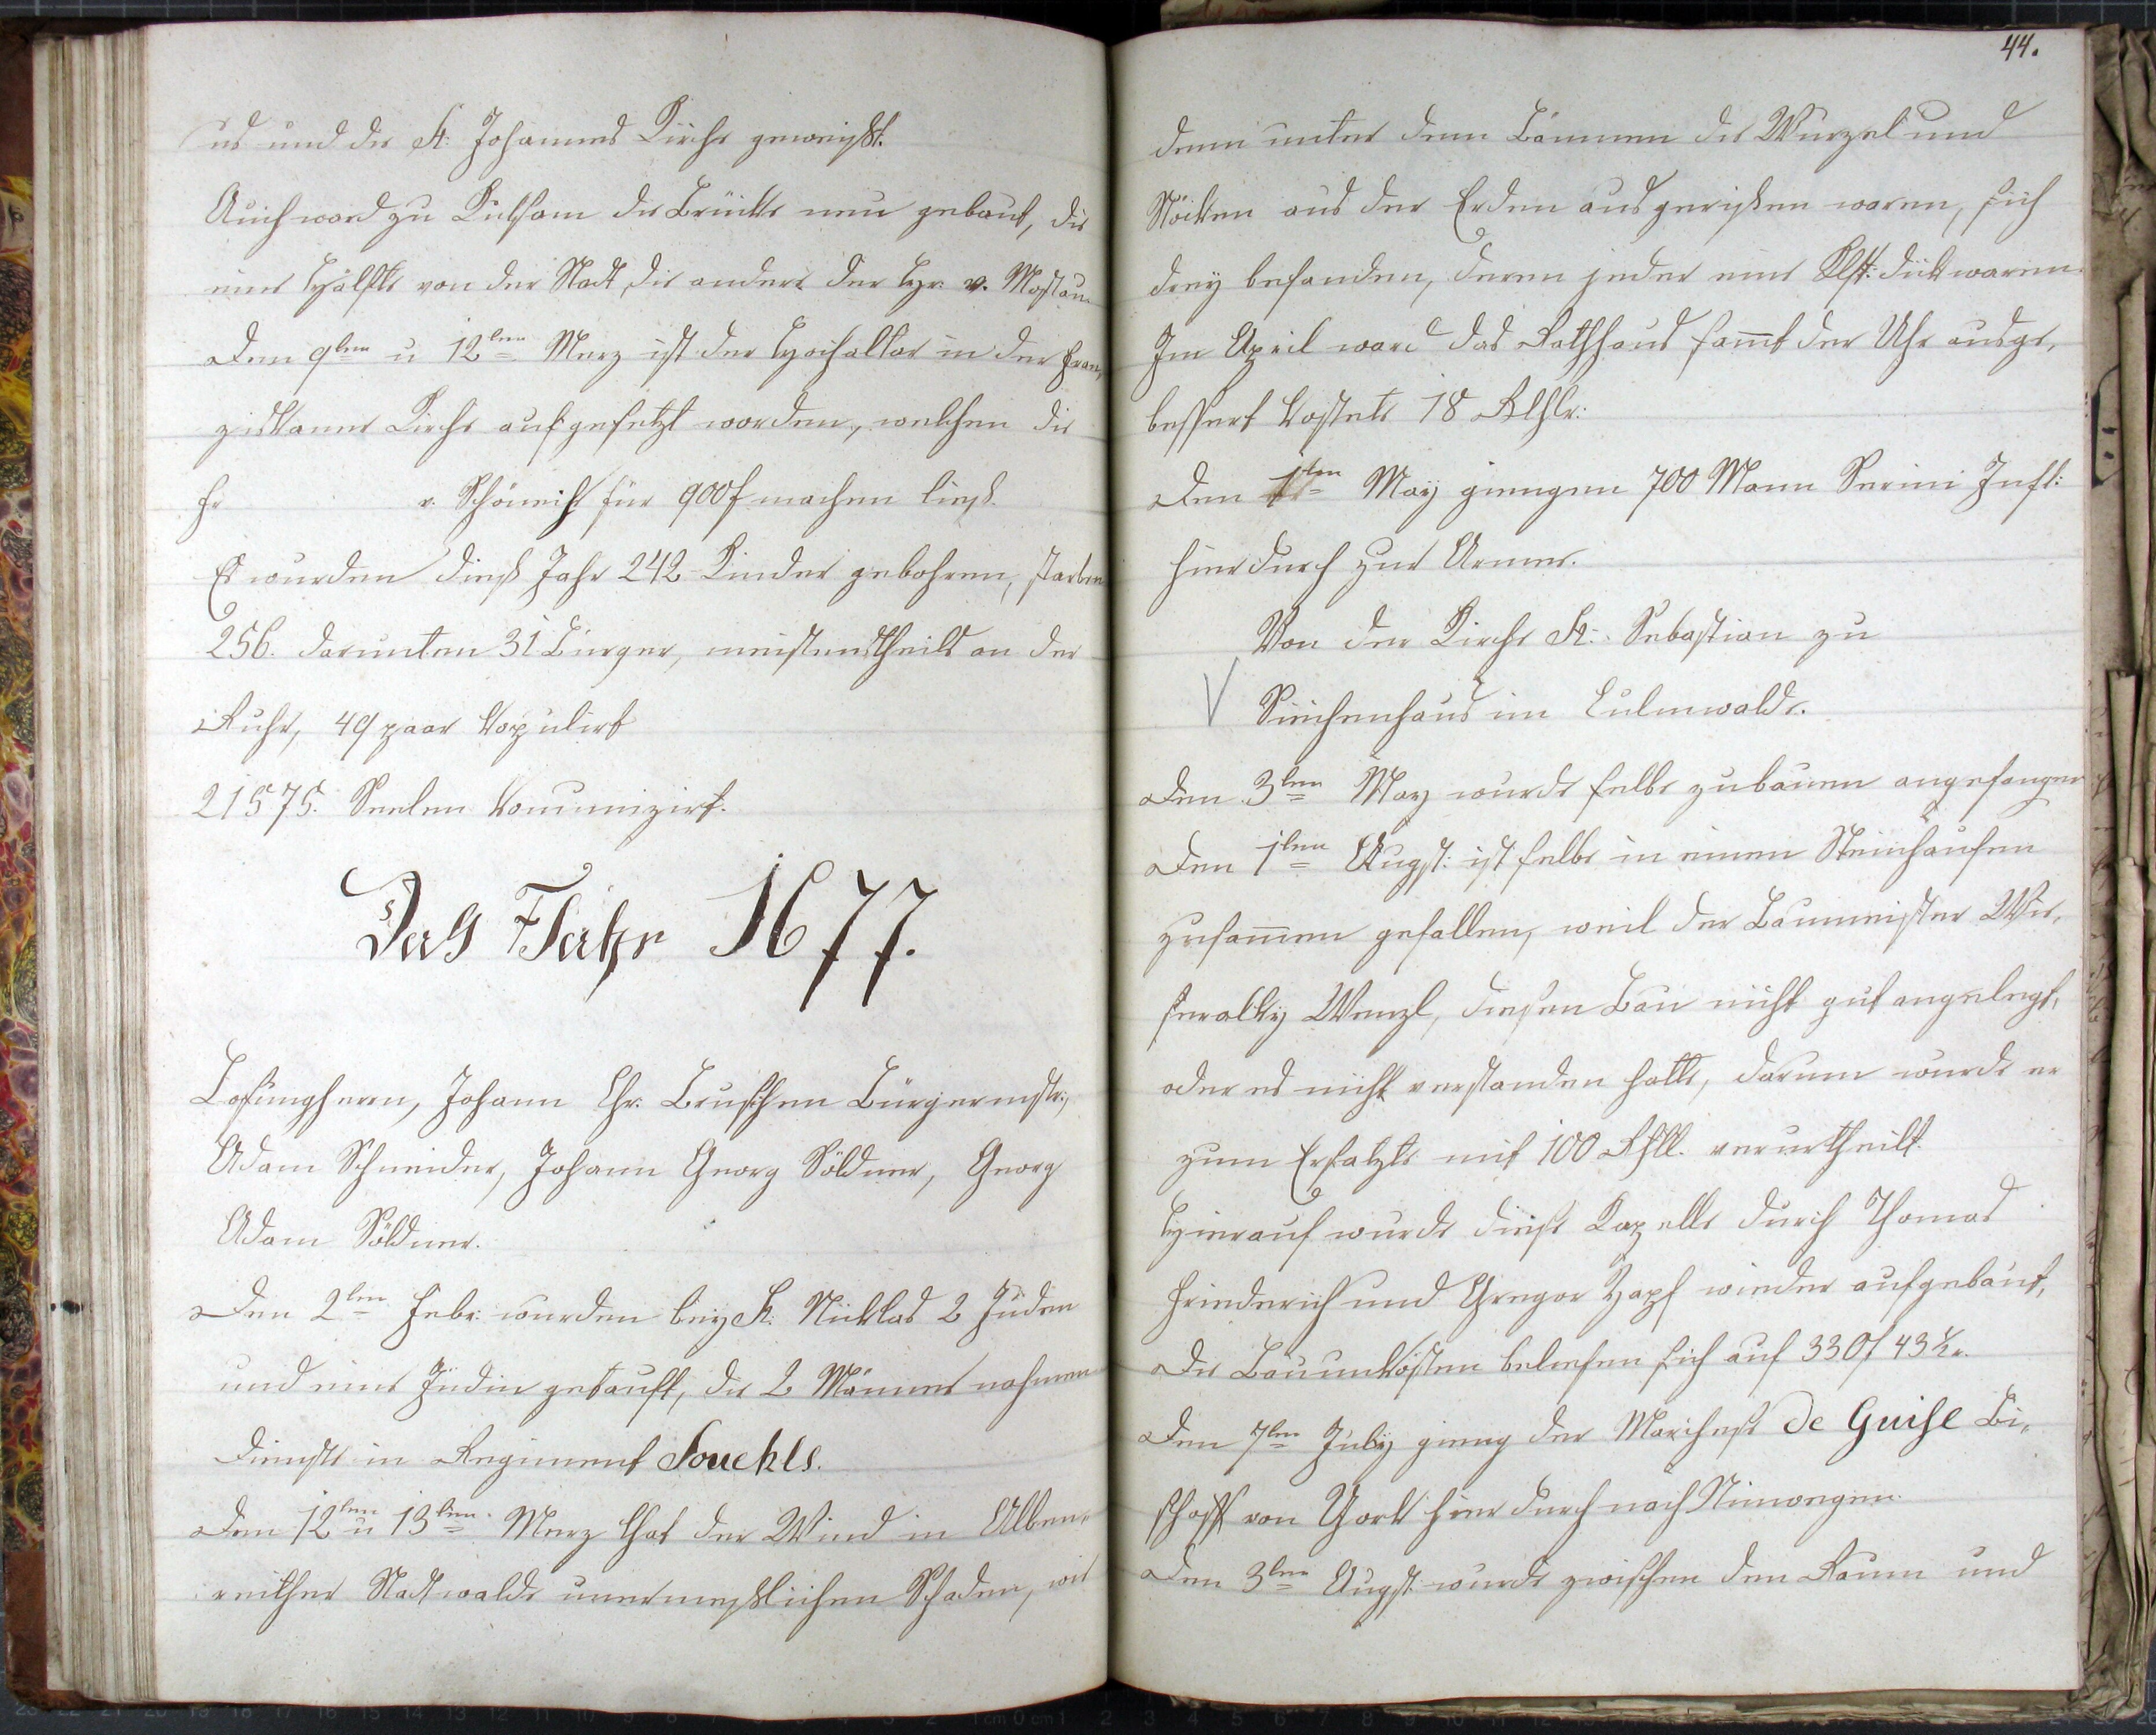 us und die St: Johannes Kirche geweihst.
Auch ward zu Kulsam die Brücke neu gebaut, die
eine Hälfte von der Stadt, die andere der Hr. v. Mostau.
Den 9ten u 12ten Merz ist der Hochaltar in der Fran,
ziskaner Kirche aufgesetzt worden, welchen die
Fr v. Schönicht für 900 f machen liesß.
Es wurden dieß Jahr 242 Kinder gebohren, starben
256. darunten 31 Bürger, meistenstheils an der
Ruhr, 49 paar kopulirt
21575. Seelen komunizirt.
Das Jahr 1677.
Losungherrn, Johann Chr. Bruschen Bürgermstr;
Adam Schneider, Johann Georg Söldner, Georg
Adam Söldner.
Den 2ten Febr: wurden bey St: Nicklas 2 Juden
und eine Jüdin getauft, die 2 Männer nahmen
Dienste in Regiment Souches.
Den 12ten u 13ten Merz that der Wind in Alben-
reither Stadtwalde unermeßlichen Schaden, wie
44.
denn unter denn Bäumen die Wurzel und
Stöcken aus der Erden ausgerißen waren, sich
drey befanden, deren jeder eine Klft: dick waren.
Im April ward das Rathhaus samt der Uhr ausge,
bessert kostete 18 Rthlr:
Den 1ten May giengen 700 Mann Serini Inft:
hierdurch zur Armee.
Von der Kirche St: Sebastian zu
Siechenhaus im Eulenwalde.
Den 3ten May wurde selbe zubauen angefangen
Den 1ten Augst: ist selbe in einen Steinhaufen
zusamen gefallen, weil der Baumeister Wie,
seralky Wenzl, diesen Bau nicht gut angelegt,
oder es nicht verstanden hatte, darum wurde er
zum Ersatzte mit 100 Rthl. verurtheilt.
Hierauf wurde diese Kapelle durch Thomas
Friederich und Gregor Zapf wieder aufgebaut,
Die Bauunkösten beliefen sich auf 330 f 43 Xr.
Den 7ten July gieng der Marchese de Guise Bi,
schoff von York hier durch nach Nimwegen.
Den 3ten Augst: wurde zwischen den Raum und